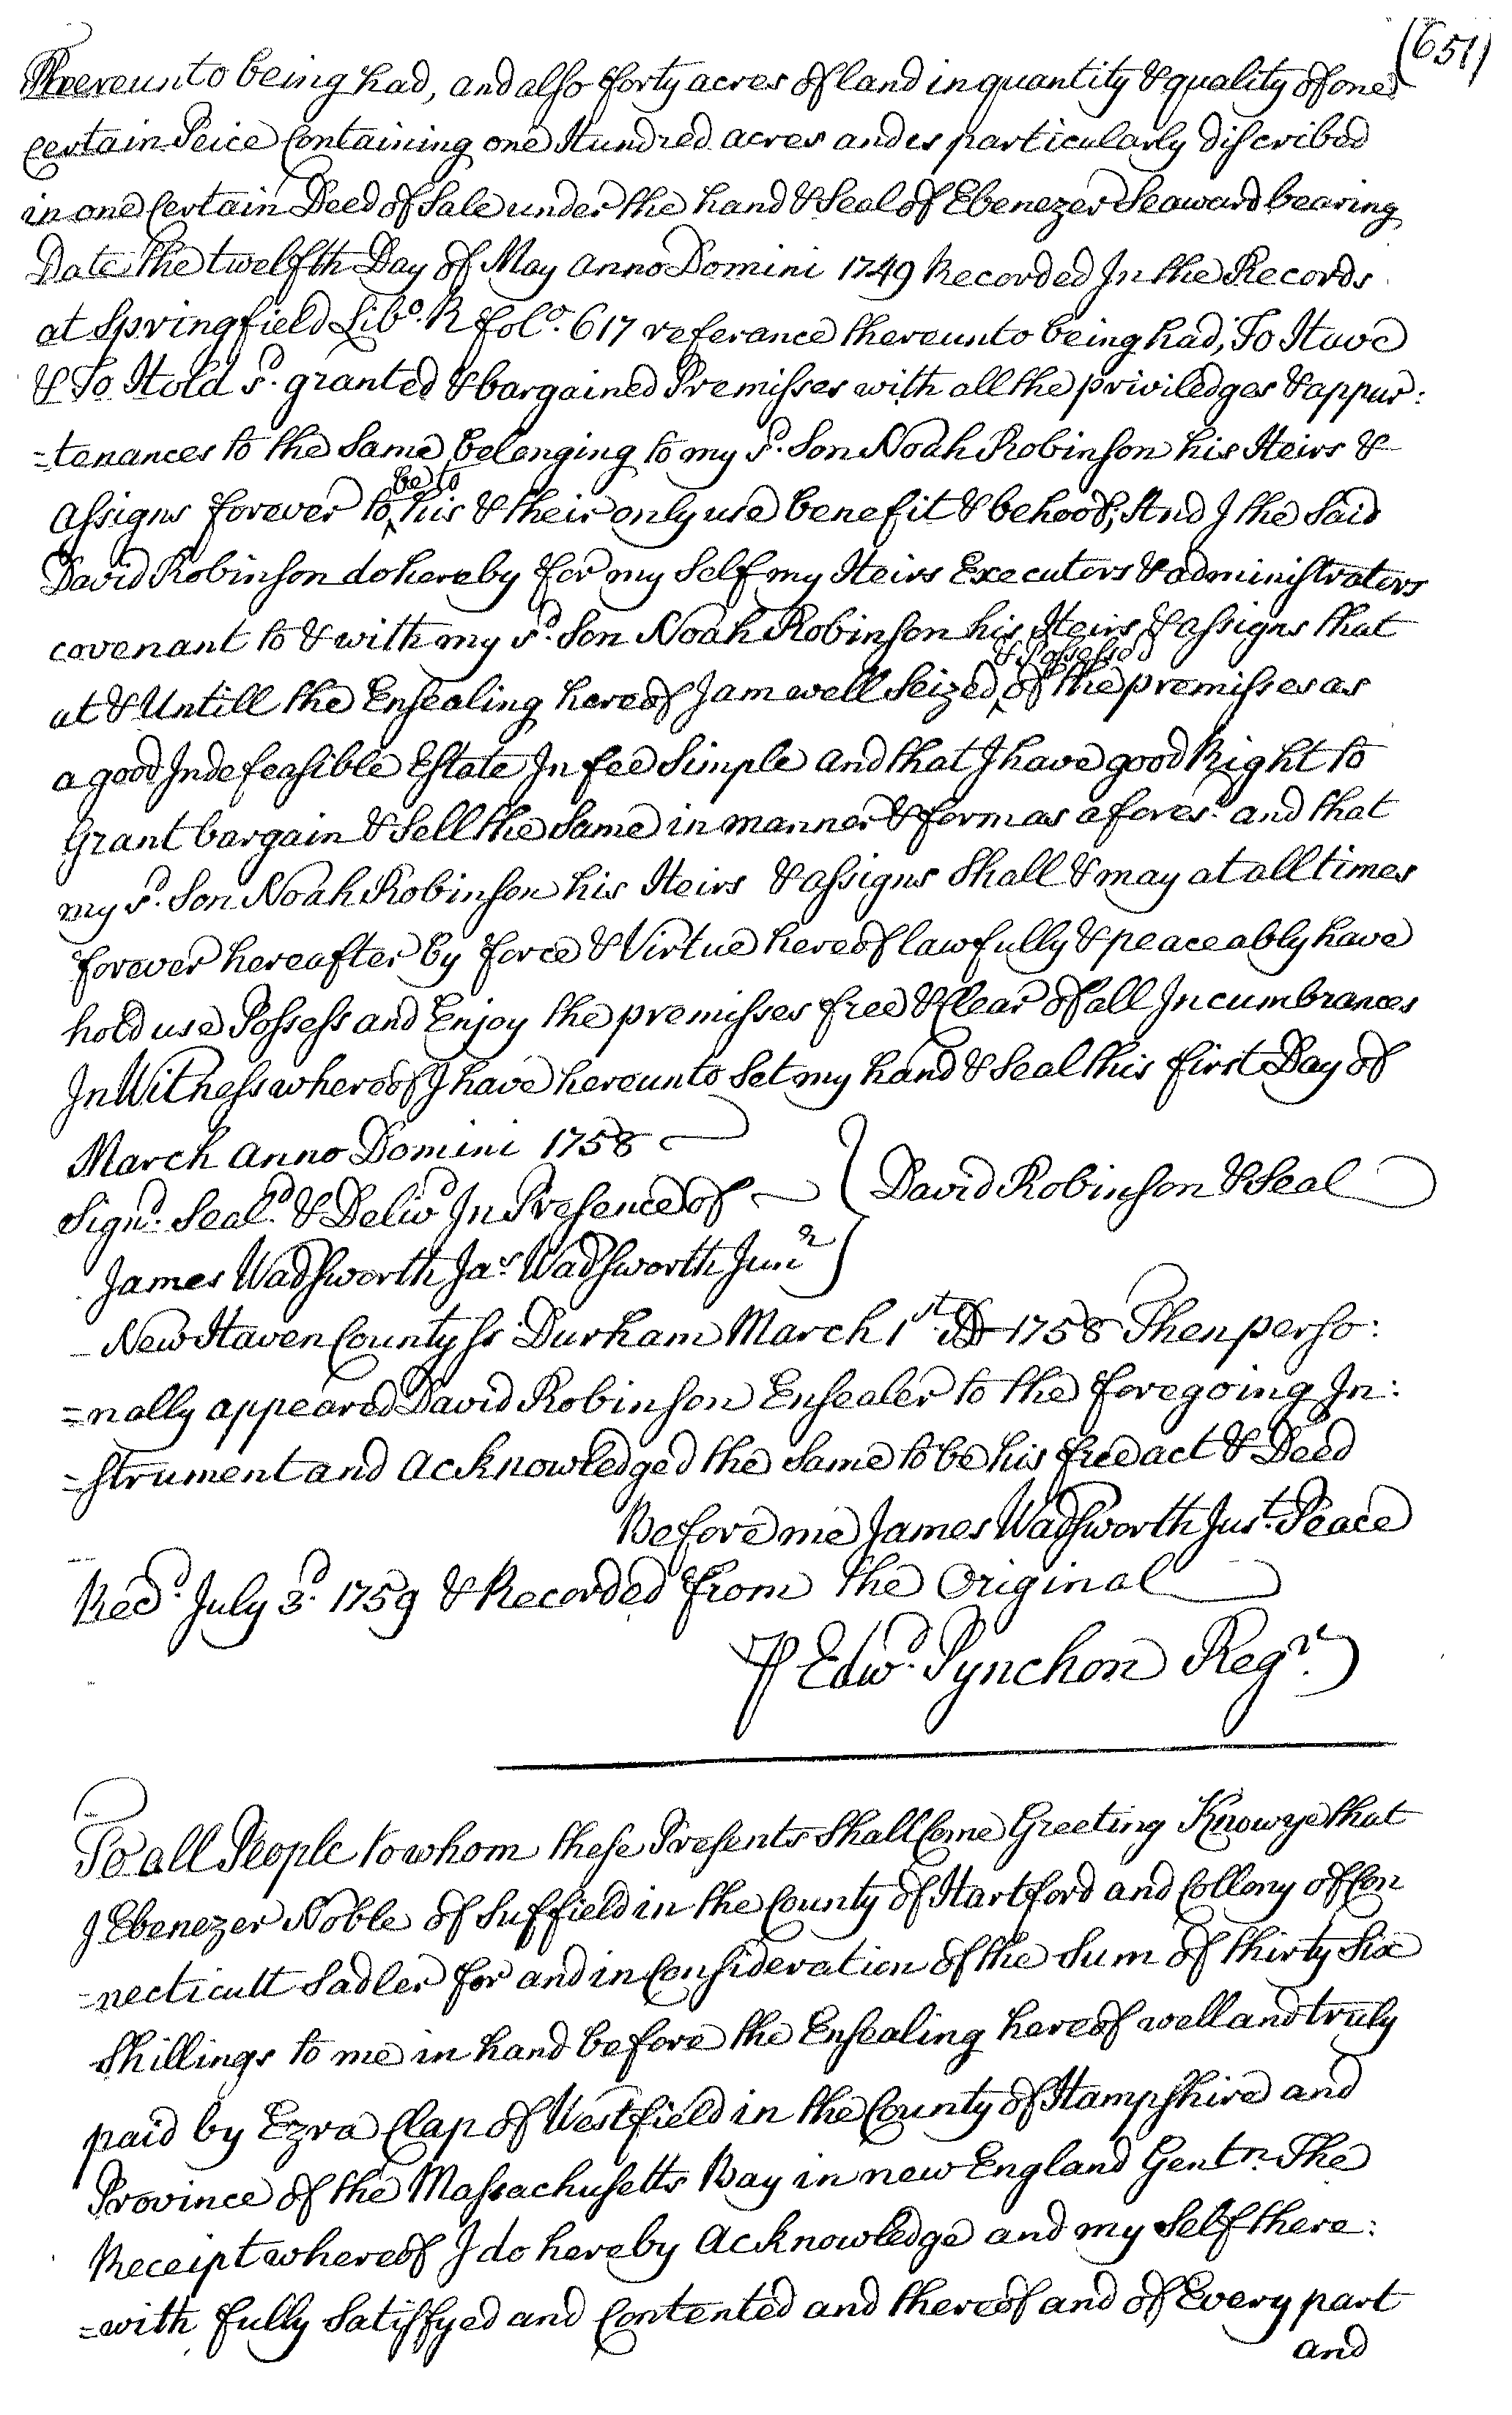 (651)
Thereunto being had, and also forty acres of land in quantity & quality of one
certain Peice Containing one Hundred acres and is particularly discribed
in one Certain Deed of Sale under the hand & Seal of Ebenezer Seaward bearing
Date the twelfth Day of May anno Domini 1749 Recorded In the Records
at Springfield Libo. R folo. 617 referance thereunto being had, To Have
& To Hold sd. granted & bargained Premisses with all the priviledges & appur:
=tenances to the Same belonging to my sd. Son Noah Robinson his Heirs &
assigns forever to be to his & their only use benefit & behoof, And I the Said
David Robinson do hereby for my Self my Heirs Executors & administrators
covenant to & with my sd. Son Noah Robinson his Heirs & assigns that
at & Untill the Ensealing hereof I am well Seized & Possessed of the premisses as
a good Indefeasible Estate In fee Simple and that I have good Right to
Grant bargain & Sell the Same in manner & form as aforesd. and that
my sd. Son Noah Robinson his Heirs & assigns Shall & may at all times
forever hereafter by force & Virtue hereof lawfully & peaceably have
hold use Possess and Enjoy the premisses free & Clear of all Incumbrances
In Witness whereof I have hereunto Set my hand & Seal this first Day of
March anno Domini 1758
Signd. Seald. & Delivd In Presence of } David Robinson & Seal
James Wadsworth Jas Wadsworth Junr
New Haven County ss Durham March 1st AD 1758 Then perso:
=nally appeared David Robinson Ensealer to the foregoing In:
=strument and acknowledged the Same to be his free act & Deed
Before me James Wadsworth Just. Peace
Recd. July 3d. 1759 & Recorded from the Original
℔ Edwd. Pynchon Regr.
To all People to whom these Presents Shall Come Greeting Know ye that
I Ebenezer Noble of Suffield in the County of Hartford and Collony of Con
=necticutt Sadler for and in Consideration of the Sum of thirty Six
Shillings to me in hand before the Ensealing hereof well and truly
paid by Ezra Clap of Westfield in the County of Hampshire and
Province of the Massachusetts Bay in new England Gentn. The
Receipt whereof I do hereby acknowledge and my Self there:
=with fully Satisfyed and Contented and thereof and of Every part
and